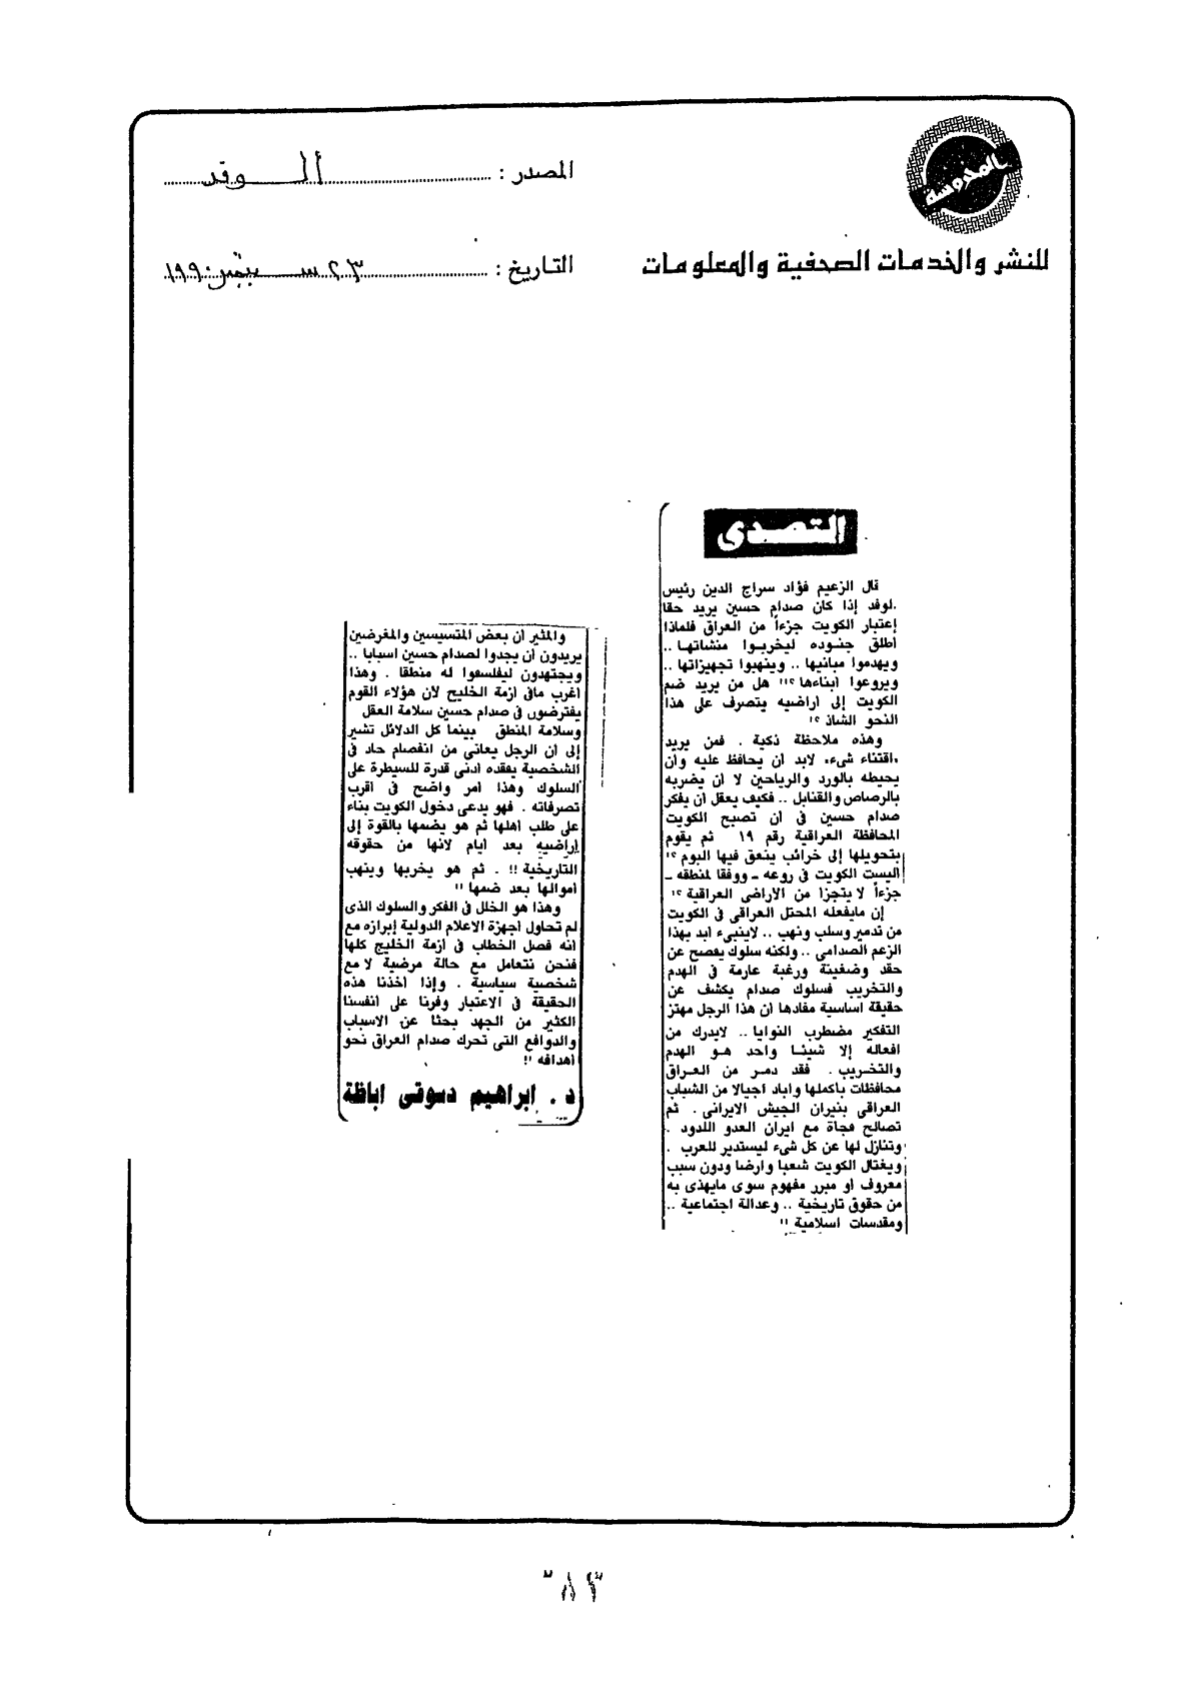 المحروسة
للنشر والخدمات الصحفية والمعلومات
المصدر : الوفد
التاريخ : ٢٣ سبتمبر ١٩٩٠
التصدى
قال الزعيم فؤاد سراج الدين رئيس
لوفد إذا كان صدام حسين يريد حقا
إعتبار الكويت جزءاً من العراق فلماذا
أطلق جنوده ليخربوا منشاتها ..
ويهدموا مبانيها .. وينهبوا تجهيزاتها ..
ويروعوا أبناءها ؟!! هل من يريد ضم
الكويت إلى اراضيه يتصرف على هذا
النحو الشاذ ؟!
وهذه ملاحظة ذكية . فمن يريد
اقتناء شىء، لابد أن يحافظ عليه وأن
يحيطه بالورد والرياحين لا أن يضربه
بالرصاص والقنابل .. فكيف يعقل أن يفكر
صدام حسين فى أن تصبح الكويت
المحافظة العراقية رقم ١٩ ثم يقوم
بتحويلها إلى خرائب ينعق فيها البوم ؟!
اليست الكويت فى روعه - ووفقا لمنطقه -
جزءاً لا يتجزا من الاراضى العراقية ؟!
إن مايفعله المحتل العراقى فى الكويت
من تدمير وسلب ونهب .. لاينبىء ابد بهذا
الزعم الصدامى .. ولكنه سلوك يفصح عن
حقد وضغينة ورغبة عارمة فى الهدم
والتخريب فسلوك صدام يكشف عن
حقيقة اساسية مفادها أن هذا الرجل مهتز
التفكير مضطرب النوايا .. لايدرك من
افعاله إلا شيئا واحد هو الهدم
والتخريب . فقد دمر من العراق
محافظات باكملها واباد اجيالا من الشباب
العراقى بنيران الجيش الايرانى . ثم
تصالح فجاة مع ايران العدو اللدود .
وتنازل لها عن كل شىء ليستدير للعرب .
ويغتال الكويت شعبا وارضا ودون سبب
معروف او مبرر مفهوم سوى مايهذى به
من حقوق تاريخية .. وعدالة اجتماعية ..
ومقدسات اسلامية !!
والمثير ان بعض المتسيسين والمغرضين
يريدون أن يجدوا لصدام حسين اسبابا ..
ويجتهدون ليفلسفوا له منطقا . وهذا
اغرب مافى ازمة الخليج لأن هؤلاء القوم
يفترضون فى صدام حسين سلامة العقل
وسلامة المنطق بينما كل الدلائل تشير
إلى ان الرجل يعانى من انفصام حاد فى
الشخصية يفقده ادنى قدرة للسيطرة على
السلوك وهذا امر واضح فى اقرب
تصرفاته . فهو يدعى دخول الكويت بناء
على طلب اهلها ثم هو يضمها بالقوة إلى
اراضيه بعد ايام لانها من حقوقه
التاريخية !! . ثم هو يخربها وينهب
اموالها بعد ضمها !!
وهذا هو الخلل فى الفكر والسلوك الذى
لم تحاول اجهزة الاعلام الدولية إبرازه مع
انه فصل الخطاب فى ازمة الخليج كلها
فنحن نتعامل مع حالة مرضية لا مع
شخصية سياسية . وإذا اخذنا هذه
الحقيقة فى الاعتبار وفرنا على انفسنا
الكثير من الجهد بحثا عن الاسباب
والدوافع التى تحرك صدام العراق نحو
اهدافه !!
د . ابراهيم دسوقى اباظة